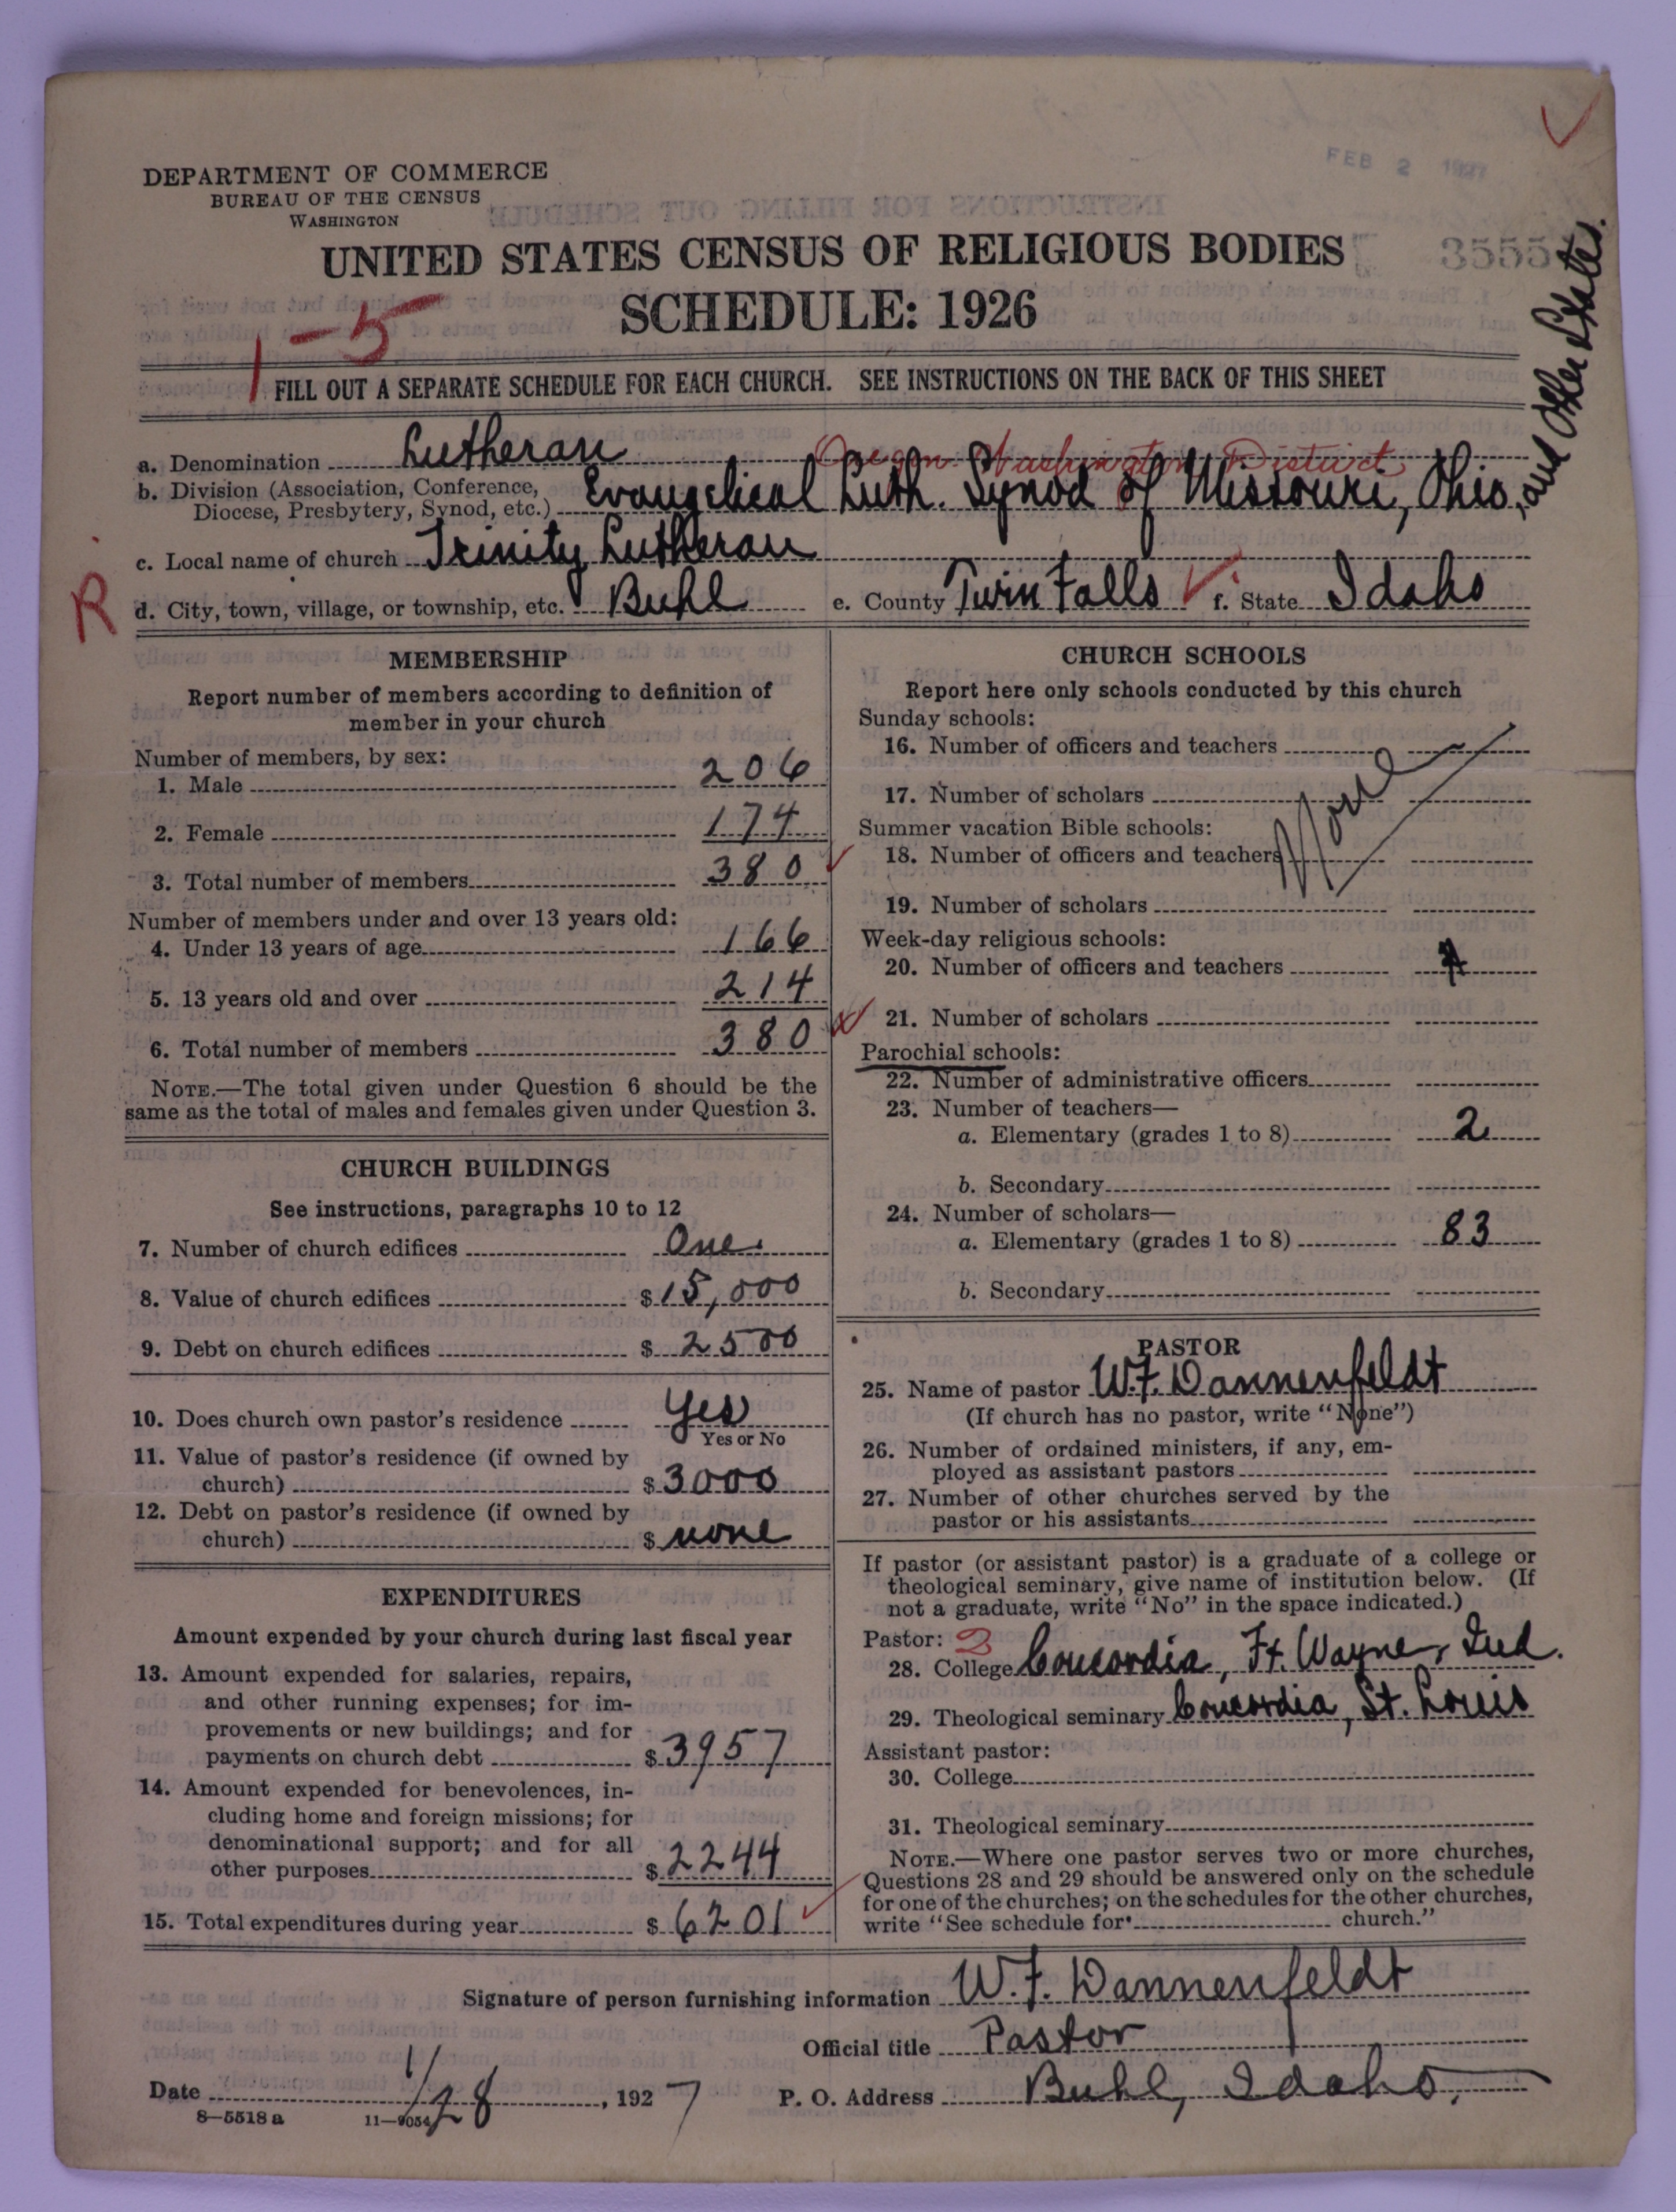 FEB 2 1927
DEPARTMENT OF COMMERCE
BUREAU OF THE CENSUS
WASHINGTON
UNITED STATES CENSUS OF RELIGIOUS BODIES
3555
SCHEDULE: 1926
1-5
FILL OUT A SEPARATE SCHEDULE FOR EACH CHURCH. SEE INSTRUCTIONS ON THE BACK OF THIS SHEET
a. Denomination Lutheran
Oregon Washington District
b. Division (Association, Conference, Diocese, Presbytery, Synod, etc.) Evangelical Luth. Synod of Missouri, Ohio, and Other States.
c. Local name of church Trinity Lutheran
R
d. City, town, village, or township, etc. Buhl e. County Twin Falls f. State Idaho
MEMBERSHIP
Report number of members according to definition of
member in your church
Number of members, by sex:
1. Male 206
2. Female 174
3. Total number of members 380
Number of members under and over 13 years old:
4. Under 13 years of age 166
5. 13 years old and over 214
6. Total number of members 380
NOTE.—The total given under Question 6 should be the
same as the total of males and females given under Question 3.
CHURCH BUILDINGS
See instructions, paragraphs 10 to 12
7. Number of church edifices One
8. Value of church edifices $15,000
9. Debt on church edifices $2500
10. Does church own pastor's residence Yes
Yes or No
11. Value of pastor's residence (if owned by
church) $3000
12. Debt on pastor's residence (if owned by
church) $none
EXPENDITURES
Amount expended by your church during last fiscal year
13. Amount expended for salaries, repairs,
and other running expenses; for im-
provements or new buildings; and for
payments on church debt $3957
14. Amount expended for benevolences, in-
cluding home and foreign missions; for
denominational support; and for all
other purposes $2244
15. Total expenditures during year $6201
CHURCH SCHOOLS
Report here only schools conducted by this church
Sunday schools:
16. Number of officers and teachers
17. Number of scholars
None
Summer vacation Bible schools:
18. Number of officers and teachers
19. Number of scholars
Week-day religious schools:
20. Number of officers and teachers
21. Number of scholars
Parochial schools:
22. Number of administrative officers
23. Number of teachers—
a. Elementary (grades 1 to 8) 2
b. Secondary
24. Number of scholars—
a. Elementary (grades 1 to 8) 83
b. Secondary
PASTOR
25. Name of pastor W.F. Dannenfeldt
(If church has no pastor, write "None")
26. Number of ordained ministers, if any, em-
ployed as assistant pastors
27. Number of other churches served by the
pastor or his assistants
If pastor (or assistant pastor) is a graduate of a college or
theological seminary, give name of institution below. (If
not a graduate, write "No" in the space indicated.)
Pastor: 2
28. College Concordia, Ft. Wayne, Ind.
29. Theological seminary Concordia, St. Louis
Assistant pastor:
30. College
31. Theological seminary
NOTE.—Where one pastor serves two or more churches,
Questions 28 and 29 should be answered only on the schedule
for one of the churches; on the schedules for the other churches,
write "See schedule for church."
Signature of person furnishing information W.F. Dannenfeldt
Official title Pastor
Date 1/28, 1927 P. O. Address Buhl, Idaho.
8—5518 a 11—9054